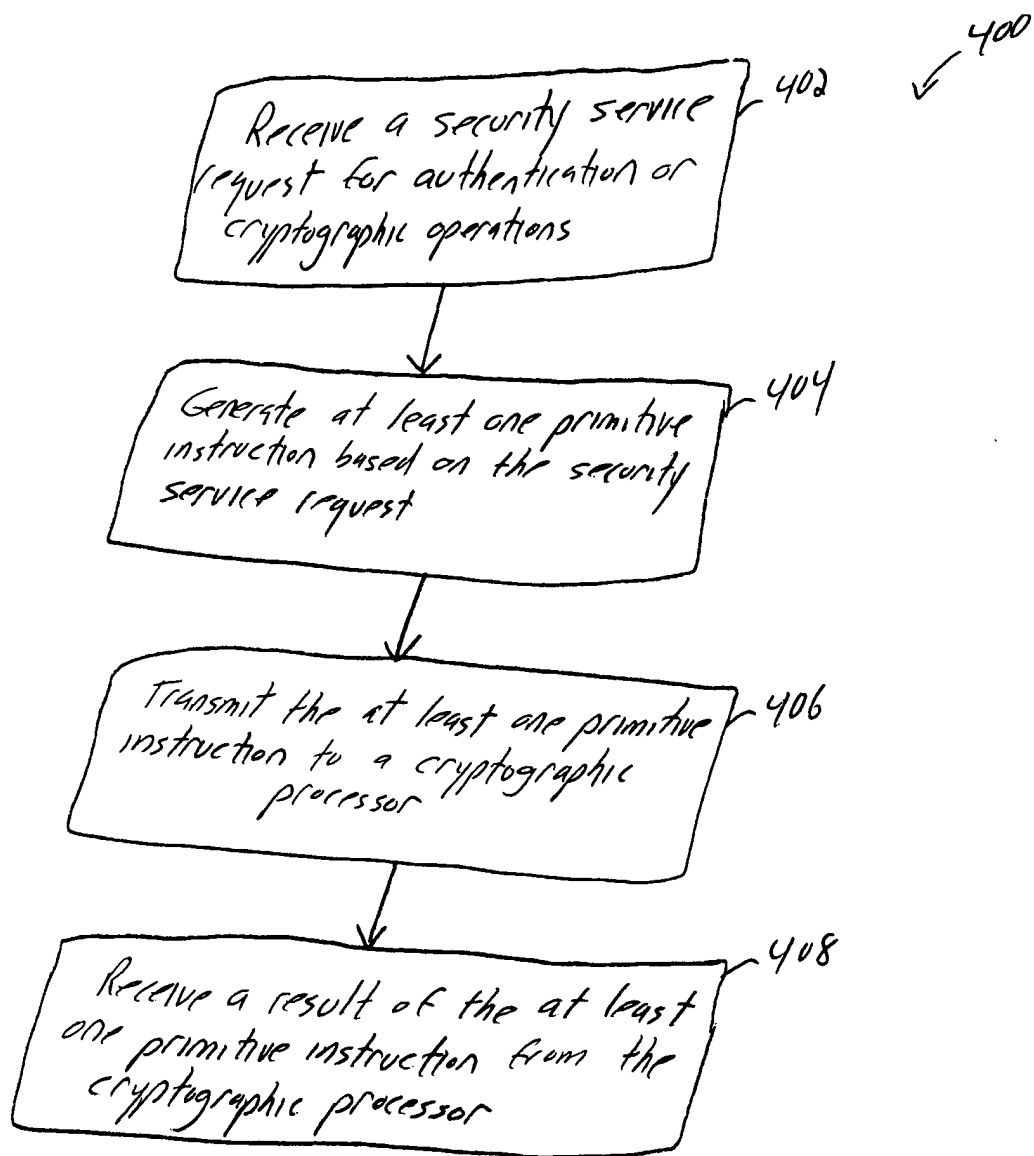 400
402
Receive a security service
request for authentication or
cryptographic operations
404
Generate at least one primitive
instruction based on the security
service request
406
Transmit the at least one primitive
instruction to a cryptographic
processor
408
Receive a result of the at least
one primitive instruction from the
cryptographic processor